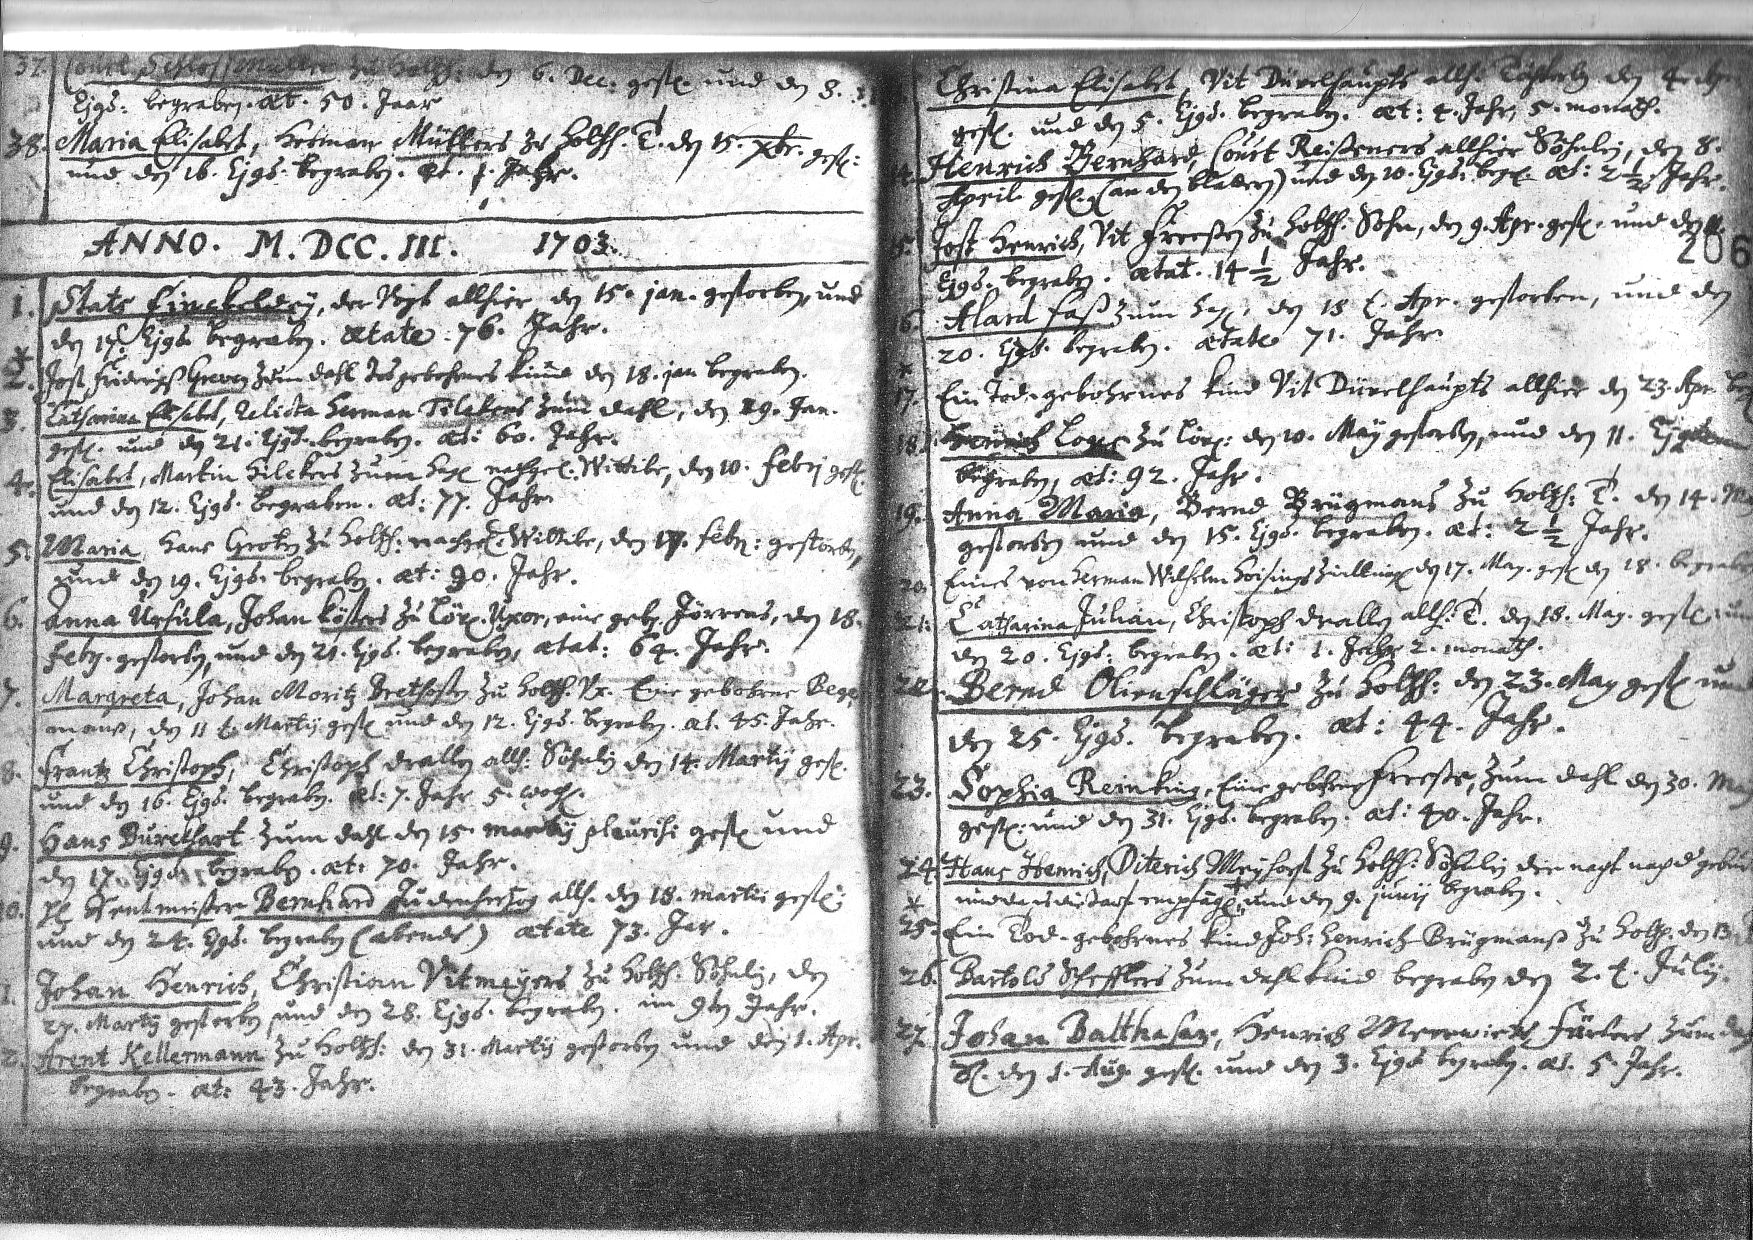 37. Court Schlossmüller zu Holtzh: den 6. Dec: gest. und den 8.
Ejgs: begraben. æt. 50. Jaar
38. Maria Elisabet, Herman Müllers zu Holtzh. T. den 15. Xbr. gest:
und den 16. Ejgs. begraben. æt. 1. Jahr.
ANNO. M.DCC.III. 1703.
1. Stats, der Vogt allhier den 15. jan. gestorben, und
den 17. Ejgs. begraben. ætate. 76. Jahr.
2. Jost Friderich Greven zum dahl kind den 18. jan begraben.
3. Catharina Elisabet, Relicta Herman Tilekens zum dahl, den 19. Jan.
gest. und den 21. Ejgs. begraben. æt: 60. Jahr.
4. Elisabet, Martin Hilekers zum nachgel. Wittibe, den 10. febrj gest.
und den 12. Ejgs. begraben. æt: 77. Jahr.
5. Maria, Hans Groten zu Holtzh: nachgel. Wittibe, den 17. febr: gestorben,
und den 19. Ejgs. begraben. æt: 90. Jahr.
6. Anna Ursula, Johan Kösters zu Uxor, eine geb. Jörrens, den 18.
febr. gestorben, und den 21. Ejgs. begraben, ætat: 64. Jahr.
7. Margreta, Johan Moritz Brethosten zu Holtzh. Ux. Eine gebohrne Bege
mans, den 11 t. Martij gest. und den 12. Ejgs. begraben. æt. 45. Jahr.
8. Frantz Christoph, Christoph drallen allh: Söhnlein den 14. Martij gest.
und den 16. Ejgs. begraben. æt: 7. Jahr 5. woch.
9. Hans Burckhart zum dahl den 15. martij pleurisi gest. und
den 17. Ejgs. begraben. æt: 70. Jahr.
10. Rentmeister Bernhard Judenhertzog allh. den 18. martii gest:
und den 24. Ejgs. begraben (abends) ætate 73. Jar.
Johan Henrich, Christian Vitmeyers zu Holtzh. Söhnlein, den
27. Martij gestorben, und den 28. Ejgs. begraben. im 9ten Jahr.
Arent Kellermann zu Holtzh: den 31. Martij gestorben und den 1. Apr.
begraben. æt: 43. Jahr.
Christina Elisabet, Vit Düvelhaupts allh. Töchterlein den 4.
gest. und den 5. Ejgs. begraben. æt: 4. Jahr, 5. monath.
14. Henrich Bernhard, Court Reisteners allhier Söhnlein, den 8.
April. gest. (an den blattern) und den 10. Ejgs. begr. æt: 2 1/2 Jahr.
15. Jost Henrich, Vit Freesen zu Holtzh. Sohn, den 9. Apr. gest. und den 11.
206
Ejgs. begraben. ætat. 14 1/2 Jahr.
16. Alard Fass zum den 18 t. Apr. gestorben, und den
20. Ejgs. begraben. ætate 71. Jahr.
17. Ein Tod-gebohrnes kind Vit Düvelhaupts allhier den 23. Apr.
18. Henrich zu den 10. May gestorben, und den 11. Ejgs.
begraben, æt: 92. Jahr.
19. Anna Maria, Bernd Brügmans zu Holtzh: T. den 14. May
gestorben und den 15. Ejgs. begraben. æt: 2 1/2 Jahr.
20. Eines von Herman Wilhelm Hoisings zwillinge den 17. May. gest. den 18. begraben
21. Catharina Julian, Christoph drallen allh: T. den 18. May. gest.
den 20. Ejgs: begraben. æt: 1. Jahr 2. monath.
22. Bernd Olienschläger zu Holtzh: den 23. May gest. und
den 25. Ejgs. begraben. æt: 44. Jahr.
23. Sophia Reinking, Eine gebohrne Freese, zum dahl den 30. May
gest: und den 31. Ejgs. begraben. æt: 40. Jahr.
24. Hans Henrich, Diterich Meyhorst zu Holtzh: Söhnlein die nacht nach
und den 9. junij begraben.
25. Ein Tod-gebohrnes kind Joh: Henrich Brügmanss zu Holtzh. den 13.
26. Bartold Schefflers zum dahl kind begraben den 2. t. Julij.
27. Johan Balthasar, Henrich Meerwiets, Färbers, zum dahl
den 1. Aug. gest. und den 3. Ejgs begraben. æt. 5. Jahr.